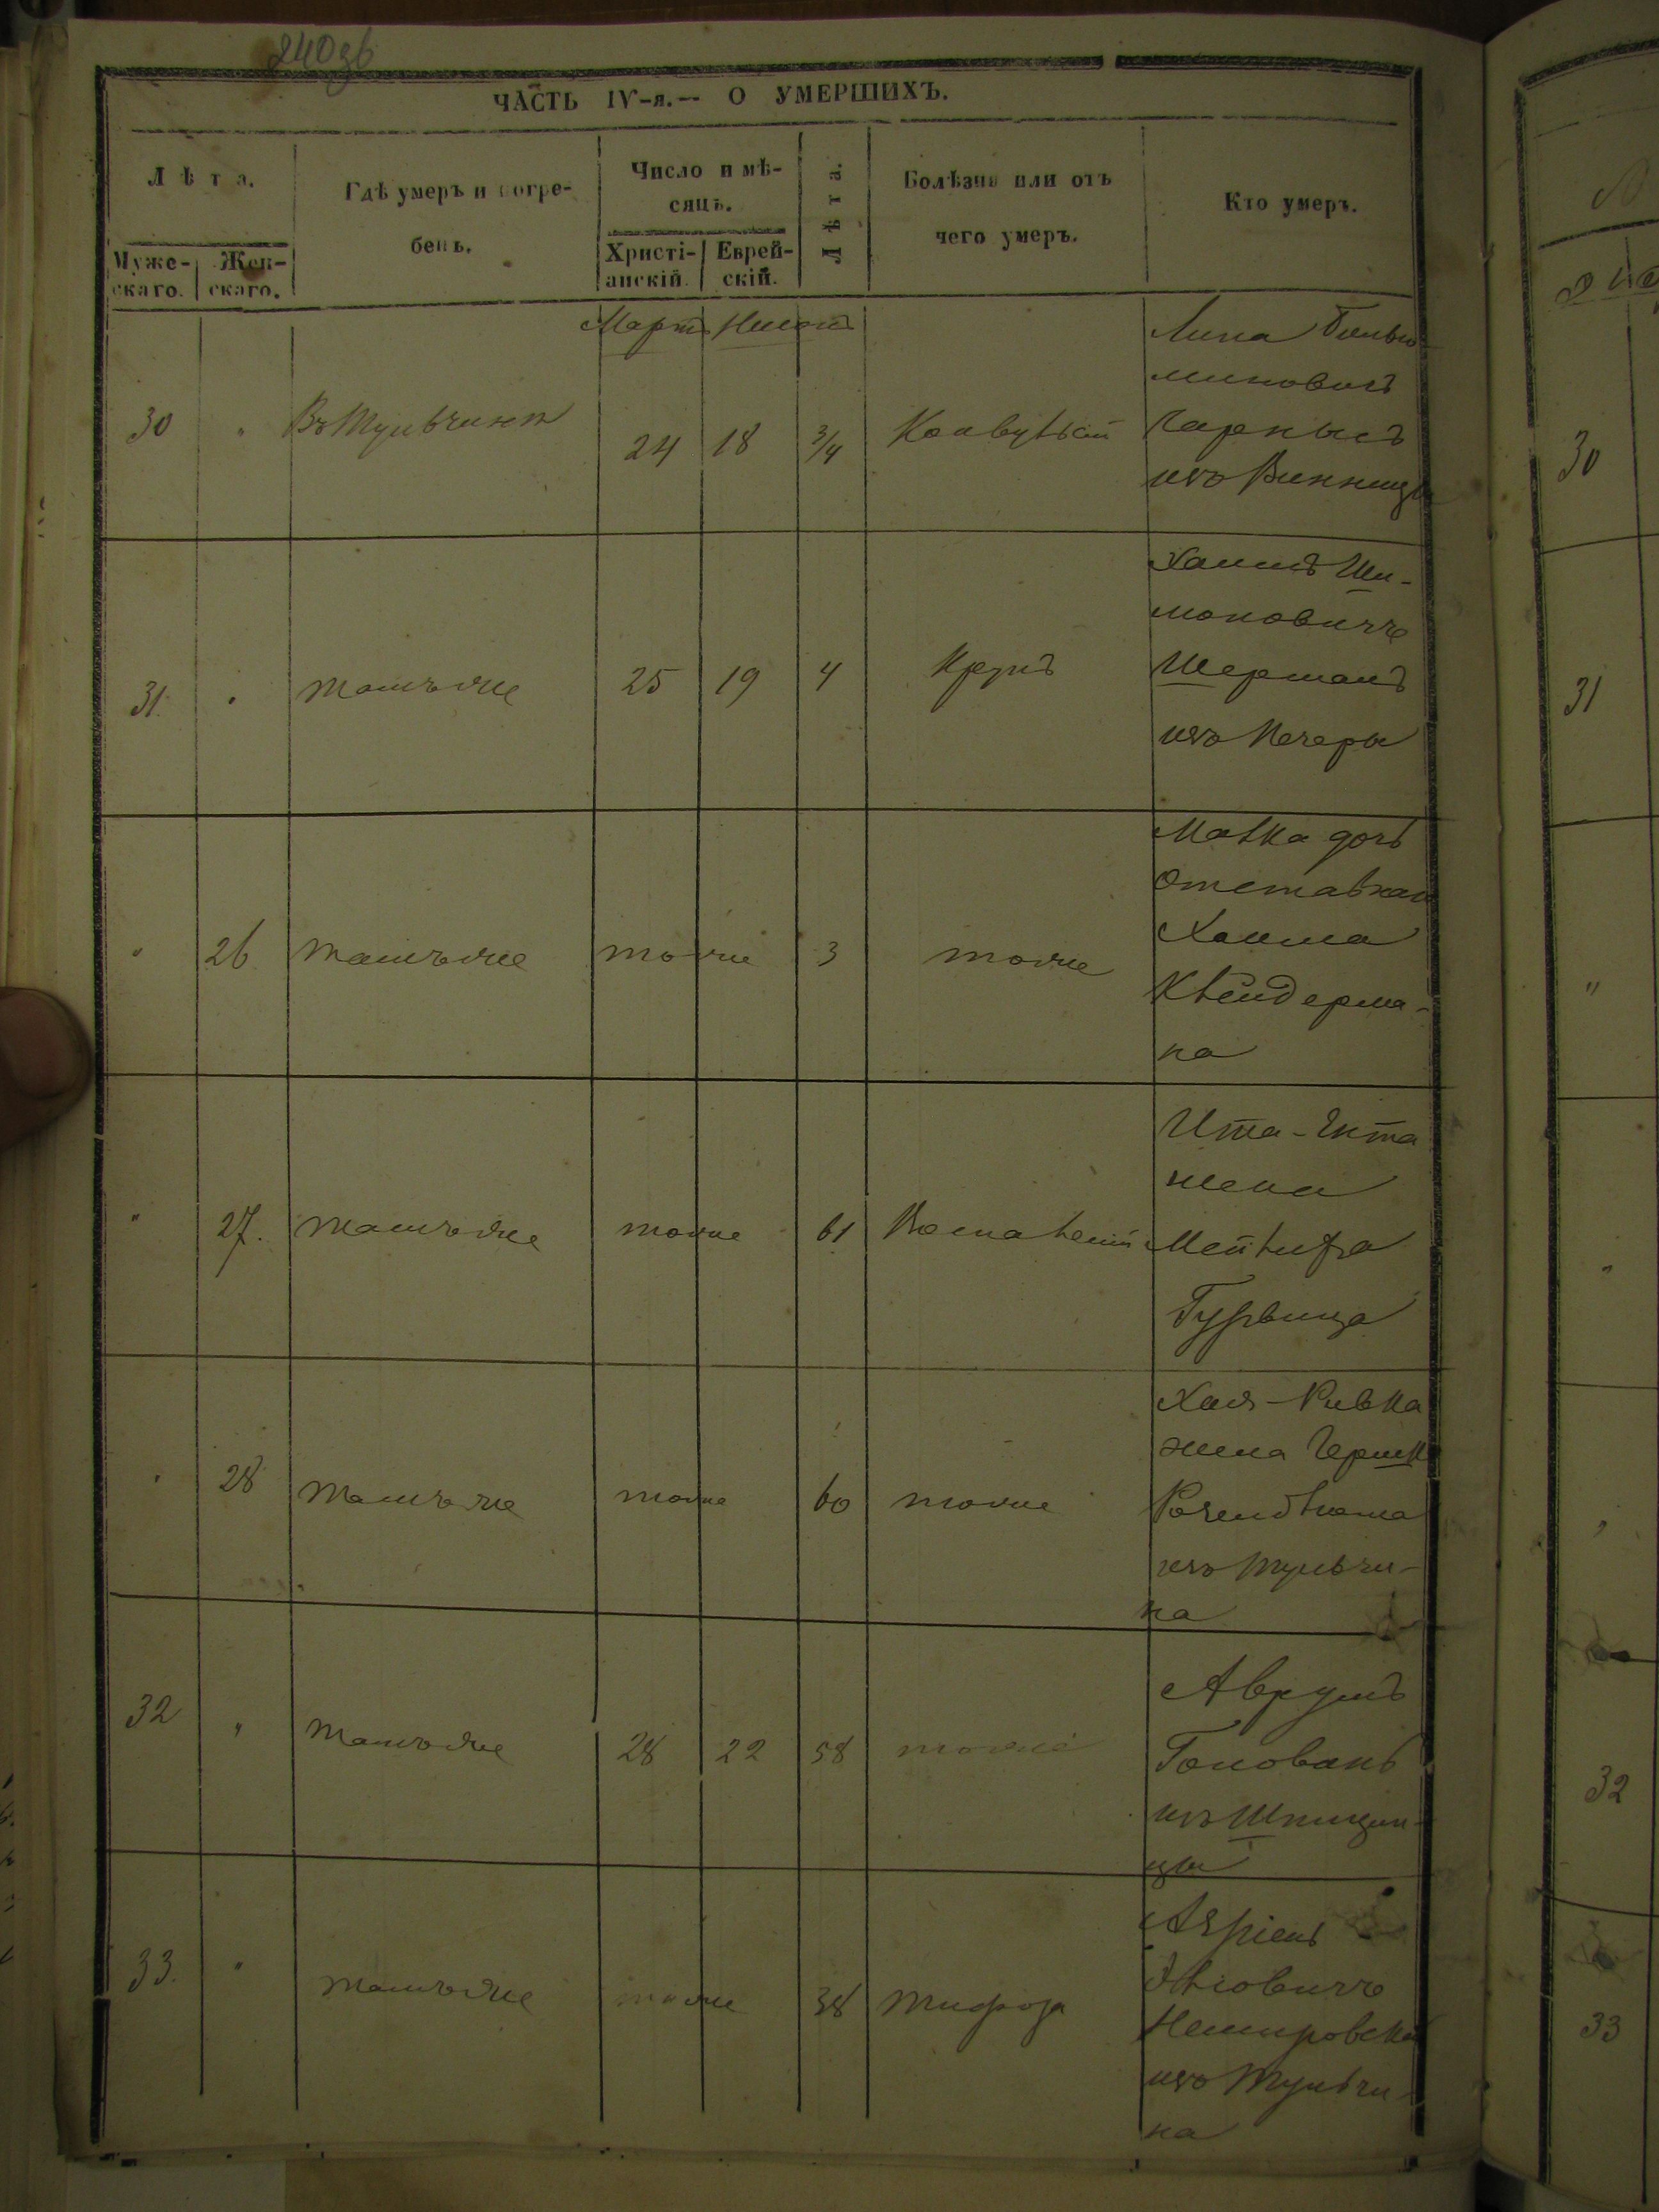 240зв
ЧАСТЬ IV-я.— О УМЕРШИХЪ.
Лѣта.
Муже-
скаго.
Жен-
скаго.
Гдѣ умеръ и погре-
бенъ.
Число и мѣ-
сяцъ.
Христі-
анскій.
Еврей-
скій.
Лѣта.
Болѣзнь или отъ
чего умеръ.
Кто умеръ.
Мартъ
30 " Въ Тульчинѣ 24 18 3/4
Липа
миновичъ
изъ Винницы
31. " тамъ же 25 19 4 Крупъ
Хаимъ Ши-
моновичъ
Шерманъ
изъ Печеры
" 26 тамъ же тоже 3 тоже
Малка дочь
Отставнаго
Хаима
Клейдерма-
на
" 27. тамъ же тоже 61 Воспаленія
Ита-Ента
жена
Мейлиха
Гурвица
" 28 тамъ же тоже 60 тоже
Хая-Ривка
жена Гершка
Розенблюма
изъ Тульчи-
на
32 " тамъ же 28 22 58 тоже
Аврумъ
Голованъ
33. " тамъ же тоже 38 Тифозн
Немировскій
изъ Тульчи-
на
30
31
"
"
"
32
33